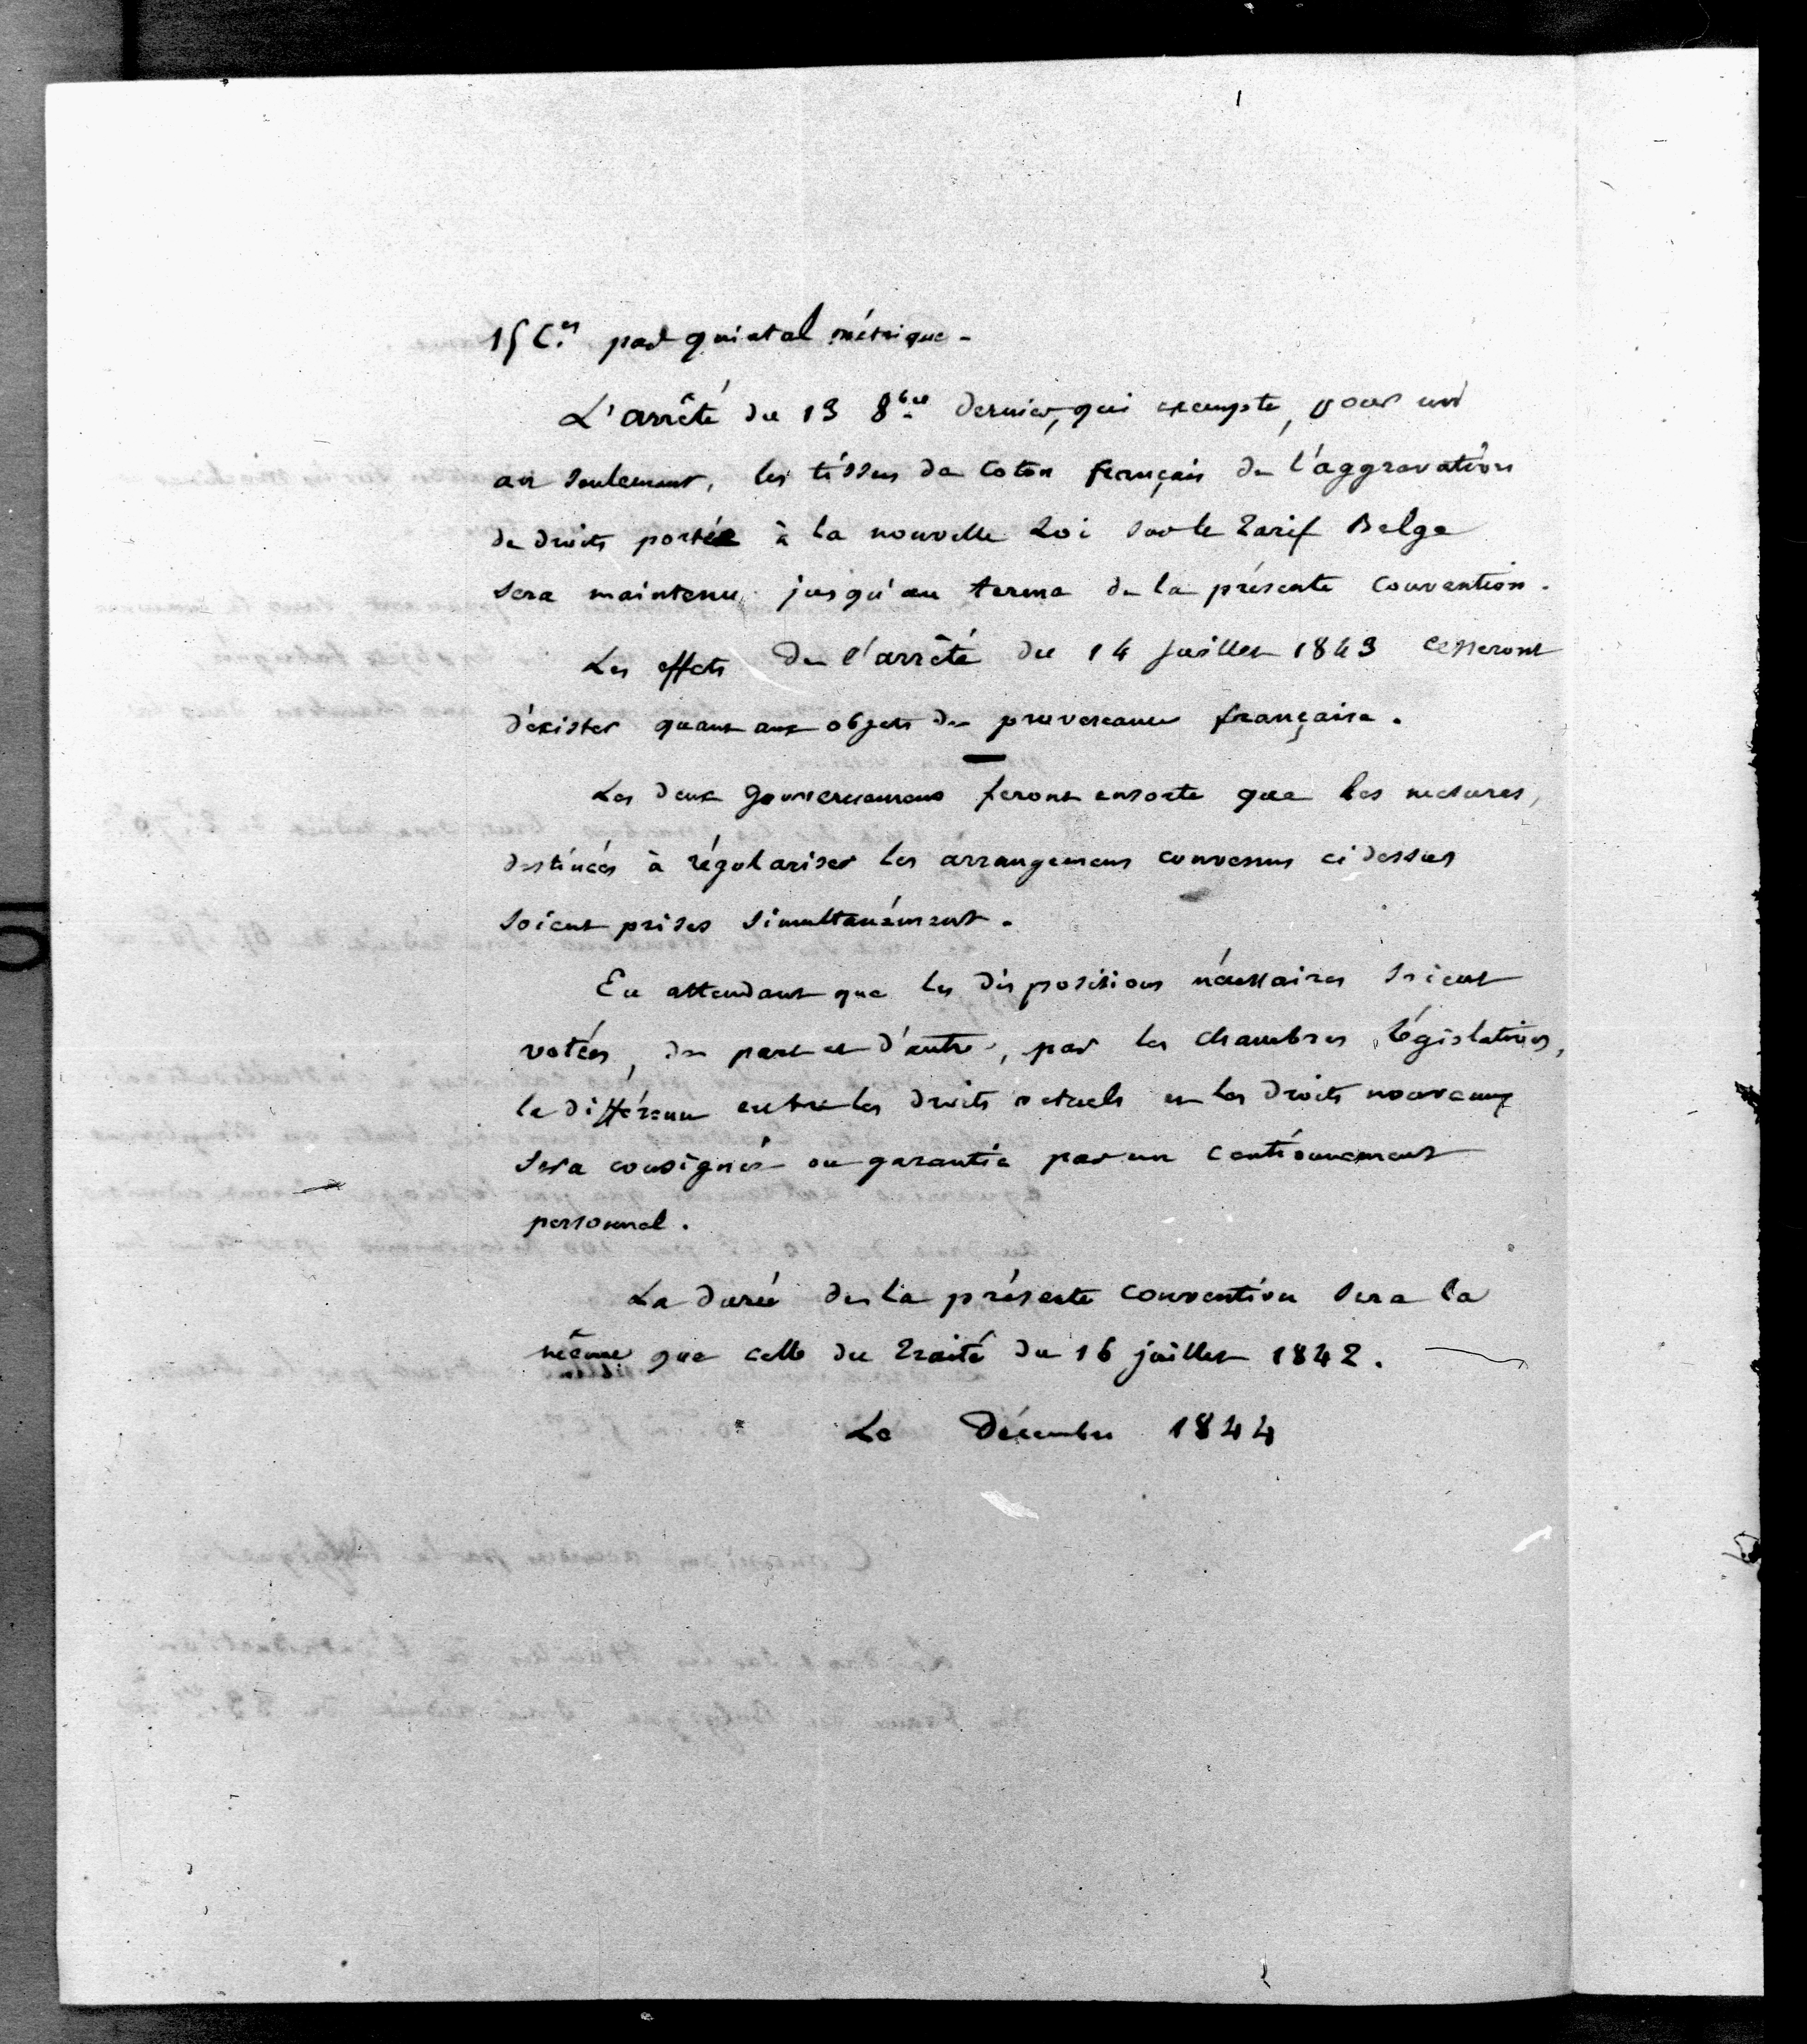 15 C.es par quintal métrique.
L'arrêté du 13 8bre dernier, qui exempte, pour un
an seulement, les tissus de coton français de l'aggravation
de droits portée à la nouvelle Loi sur le Tarif Belge
sera maintenu jusqu'au terme de la présente convention.
Les effets de l'arrêté du 14 juillet 1843 cesseront
d'exister quant aux objets de provenance française.
Les deux gouvernemens feront ensorte que les mesures,
destinées à régulariser les arrangemens convenus ci dessus
soient prises simultanément.
En attendant que les dispositions nécessaires soient
votées, de part et d'autre, par les chambres législatives,
la différence entre les droits actuels et les droits nouveaux
sera consignée ou garantie par un cautionnement
personnel.
La durée de la présente convention sera la
même que celle du Traité du 16 juillet 1842.
Le Décembre 1844